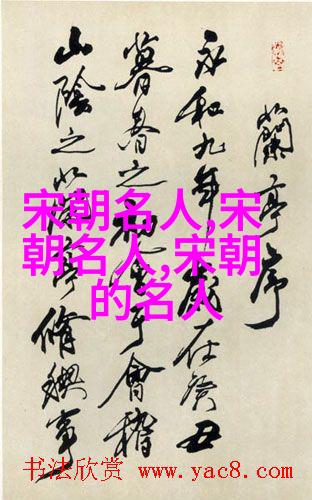 蘭亭序
永和九年歲在癸丑
暮春之初會于會稽
山陰之蘭亭脩禊事
宋朝名人,宋
朝名人,宋朝
的名人
书法欣赏 www.yac8.com